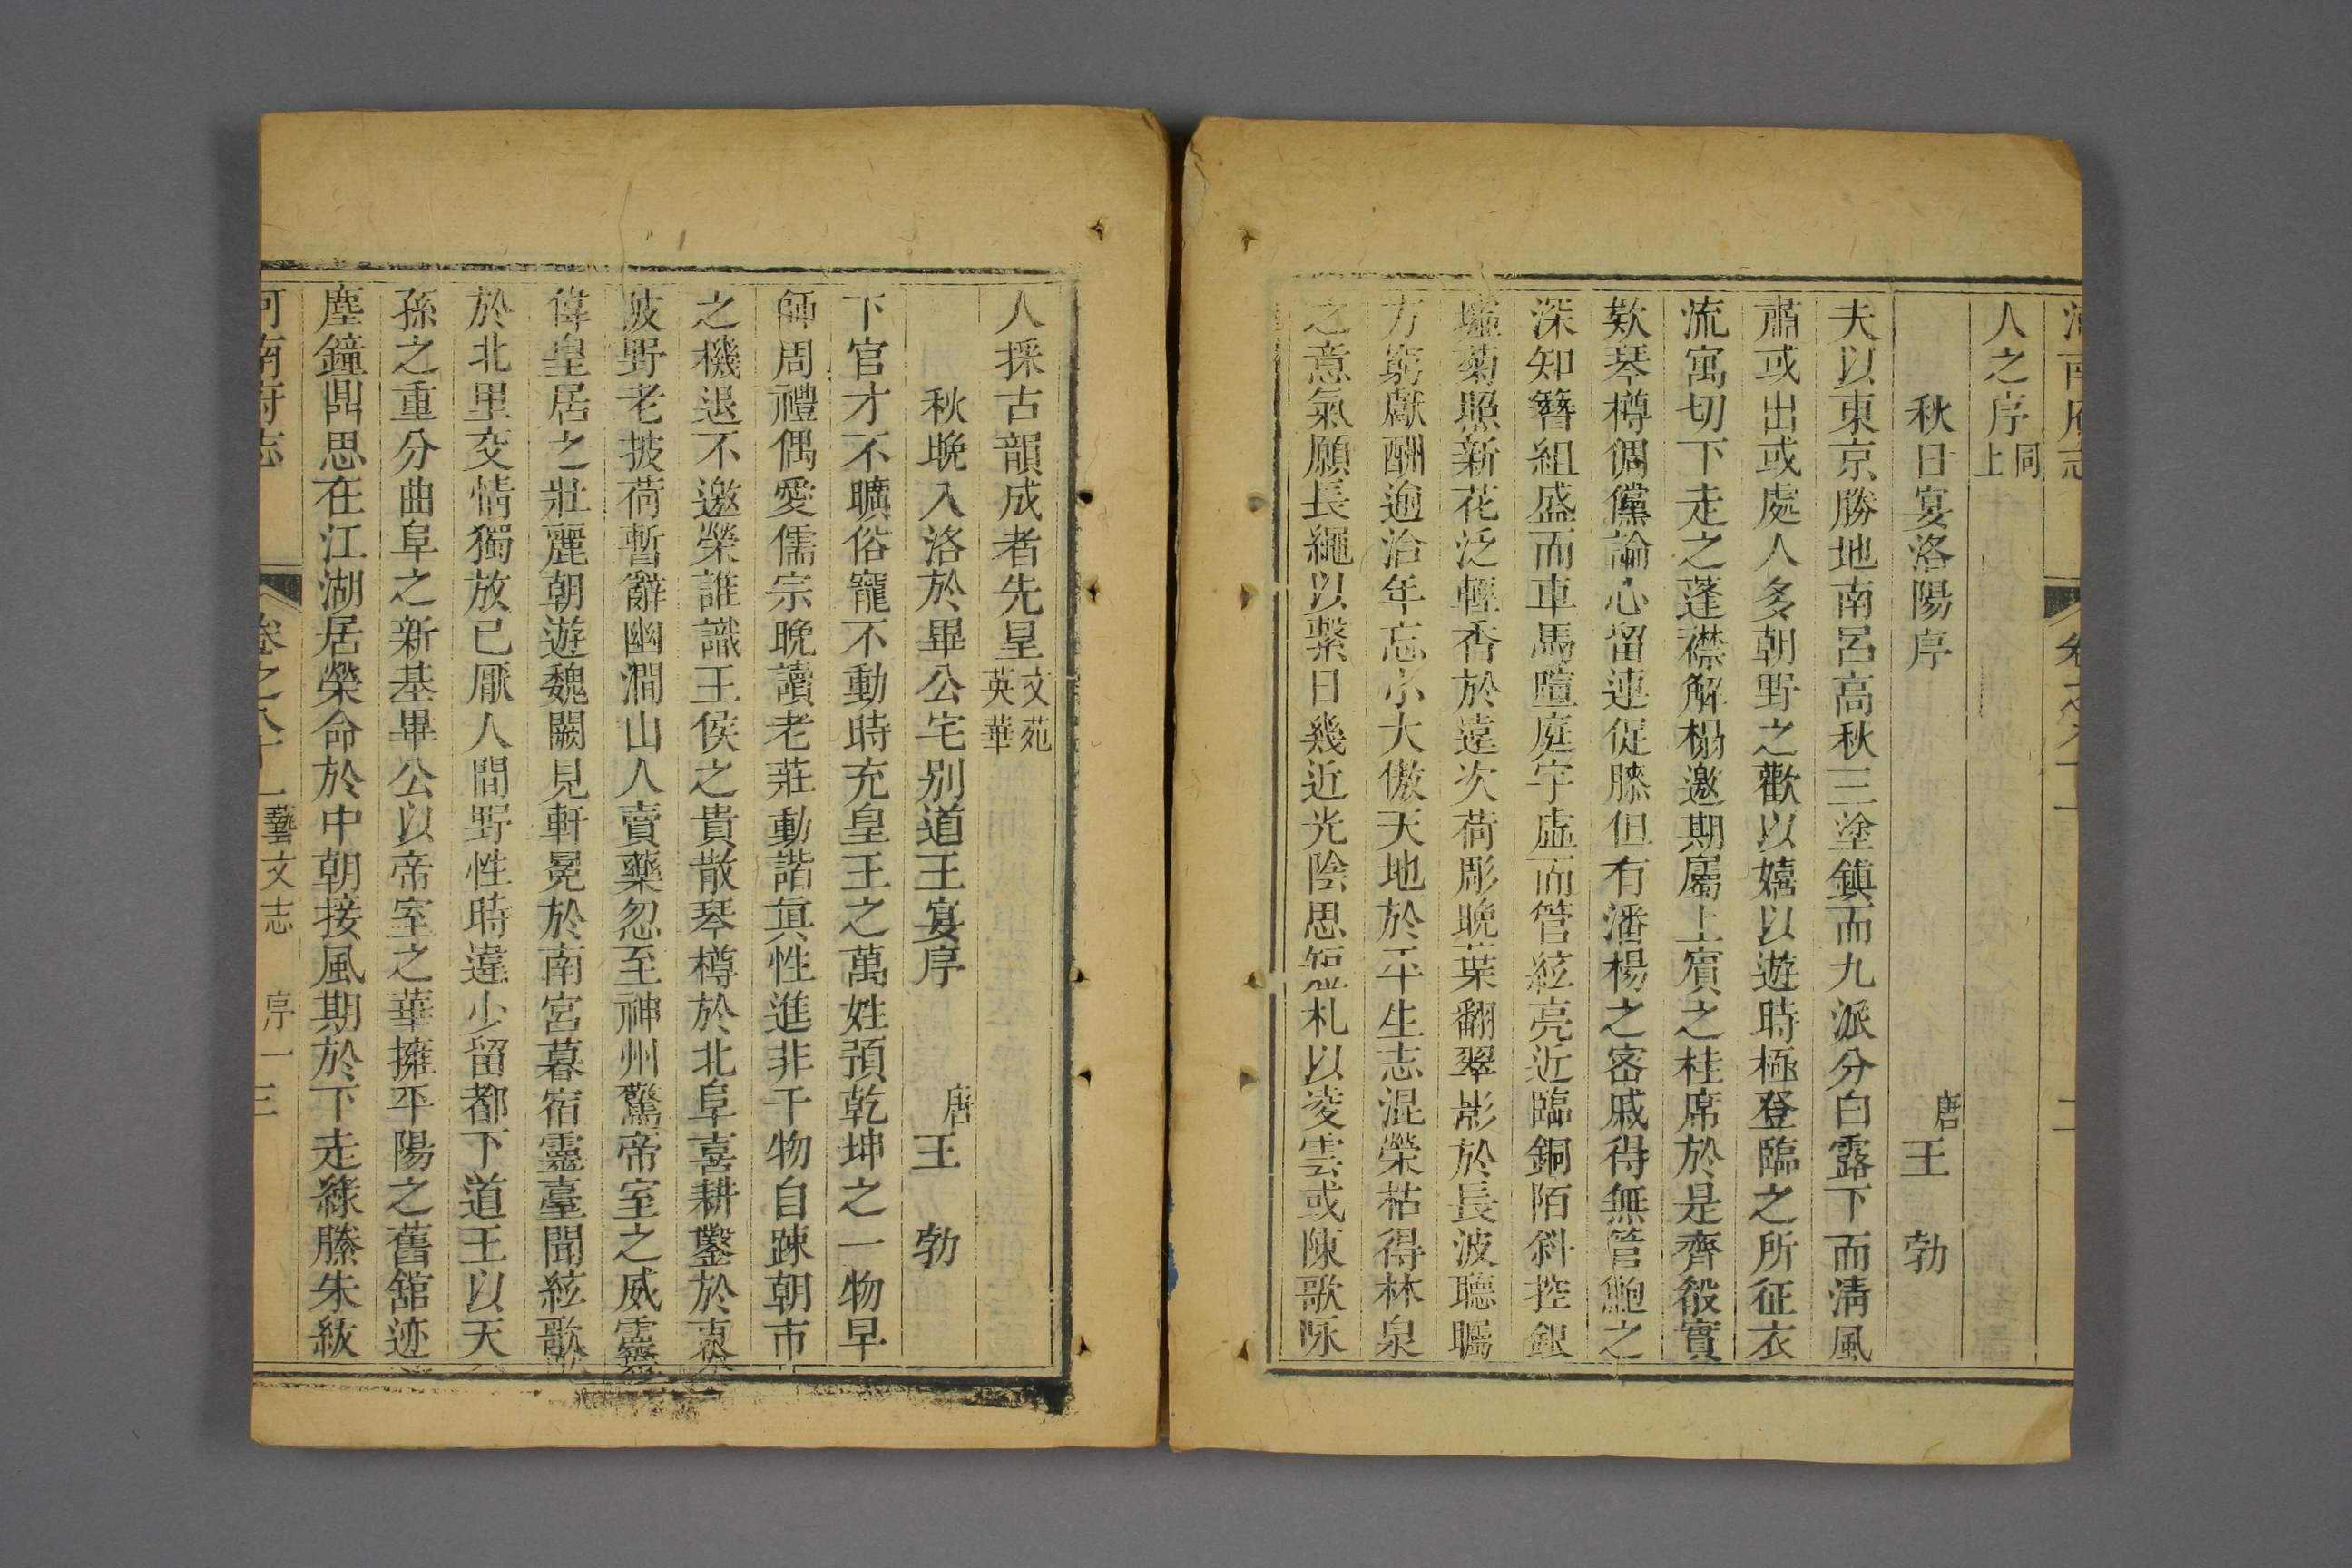 河南府志 卷之八十一 二
人之序同上
秋日宴洛陽序 唐王勃
夫以東京勝地南呂高秋三塗鎮而九派分白露下而淸風
肅或出或處人多朝野之歡以嬉以遊時極登臨之所征衣
流寓切下走之蓬襟解榻邀期屬上賓之桂席於是齊殽實
欵琴樽倜儻論心留連促膝但有潘楊之宻戚得無管鮑之
深知簪組盛而車馬喧庭宇虛而管絃亮近臨銅陌斜控銀
墟菊照新花泛輕香於遠次荷彫晚葉翻翠影於長波聽矚
方窮獻酬逾洽年忘小大傲天地於平生志混榮枯得林泉
之意氣願長繩以繫日幾近光陰思短札以凌雲或陳歌咏
人採古韻成者先呈文苑英華
秋晚入洛於畢公宅别道王宴序 唐王勃
下官才不曠俗寵不動時充皇王之萬姓預乾坤之一物早
師周禮偶愛儒宗晚讀老莊動諧眞性進非干物自踈朝市
之機退不邀榮誰識王侯之貴散琴樽於北阜喜耕鑿於東
陂野老披荷暫辭幽澗山人賣藥忽至神州驚帝室之威靈
偉皇居之壯麗朝遊魏闕見軒冕於南宮暮宿靈臺聞絃歌
於北里交情獨放已厭人間野性時違少留都下道王以天
孫之重分曲阜之新基畢公以帝室之華擁平陽之舊舘迹
塵鐘鼎思在江湖居榮命於中朝接風期於下走綠縢朱紱
河南府志 卷之八十一藝文志 序一 三